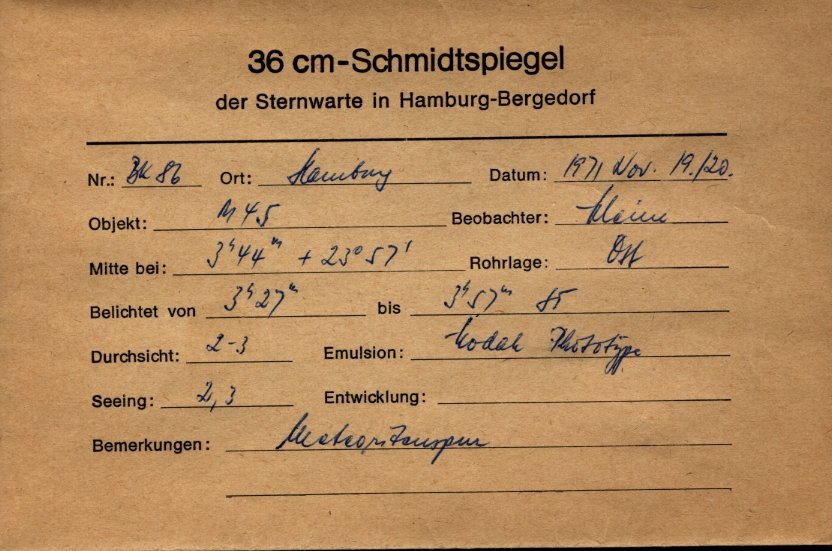 36 cm-Schmidtspiegel
der Sternwarte in Hamburg-Bergedorf
Nr.: BK 86 Ort: Hamburg Datum: 1971 Nov. 19./20.
Objekt: M 45 Beobachter:
Mitte bei: 3ʰ44ᵐ + 23° 57' Rohrlage: Ost
Belichtet von 3ʰ27ᵐ bis 3ʰ57ᵐ
Durchsicht: 2-3 Emulsion: Kodak Phototype
Seeing: 2,3 Entwicklung:
Bemerkungen: Meteoritenspur